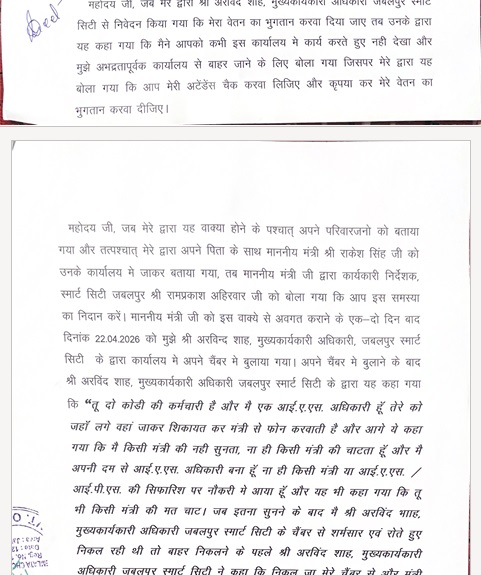 महोदय जी, जब मेरे द्वारा श्री अरविंद शाह, मुख्यकार्यकारी अधिकारी जबलपुर स्मार्ट
सिटी से निवेदन किया गया कि मेरा वेतन का भुगतान करवा दिया जाए तब उनके द्वारा
यह कहा गया कि मैने आपको कभी इस कार्यालय मे कार्य करते हुए नही देखा और
मुझे अभद्रतापूर्वक कार्यालय से बाहर जाने के लिए बोला गया जिसपर मेरे द्वारा यह
बोला गया कि आप मेरी अटेंडेंस चैक करवा लिजिए और कृपया कर मेरे वेतन का
भुगतान करवा दीजिए।
महोदय जी, जब मेरे द्वारा यह वाक्या होने के पश्चात् अपने परिवारजनो को बताया
गया और तत्पश्चात् मेरे द्वारा अपने पिता के साथ माननीय मंत्री श्री राकेश सिंह जी को
उनके कार्यालय मे जाकर बताया गया, तब माननीय मंत्री जी द्वारा कार्यकारी निर्देशक,
स्मार्ट सिटी जबलपुर श्री रामप्रकाश अहिरवार जी को बोला गया कि आप इस समस्या
का निदान करें। माननीय मंत्री जी को इस वाक्ये से अवगत कराने के एक–दो दिन बाद
दिनांक 22.04.2026 को मुझे श्री अरविन्द शाह, मुख्यकार्यकारी अधिकारी, जबलपुर स्मार्ट
सिटी के द्वारा कार्यालय मे अपने चैंबर मे बुलाया गया। अपने चैंबर मे बुलाने के बाद
श्री अरविंद शाह, मुख्यकार्यकारी अधिकारी जबलपुर स्मार्ट सिटी के द्वारा यह कहा गया
कि "तू दो कोडी की कर्मचारी है और मै एक आई.ए.एस. अधिकारी हूँ तेरे को
जहाँ लगे वहां जाकर शिकायत कर मंत्री से फोन करवाती है और आगे ये कहा
गया कि मै किसी मंत्री की नही सुनता, ना ही किसी मंत्री की चाटता हूँ और मै
अपनी दम से आई.ए.एस. अधिकारी बना हूँ ना ही किसी मंत्री या आई.ए.एस. /
आई.पी.एस. की सिफारिश पर नौकरी मे आया हूँ और यह भी कहा गया कि तू
भी किसी मंत्री की मत चाट। जब इतना सुनने के बाद मै श्री अरविंद भााह,
मुख्यकार्यकारी अधिकारी जबलपुर स्मार्ट सिटी के चैंबर से शर्मसार एवं रोते हुए
निकल रही थी तो बाहर निकलने के पहले श्री अरविंद शाह, मुख्यकार्यकारी
अधिकारी जबलपुर स्मार्ट सिटी ने कहा कि निकल जा मेरे चैंबर से और मंत्री